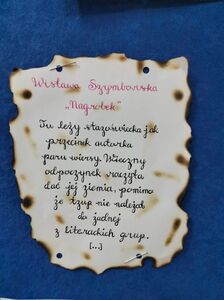 Wisława Szymborska
„Nagrobek"
Tu leży staroświecka jak
przecinek autorka
paru wierszy. Wieczny
odpoczynek raczyła
dać jej ziemia, pomimo
że trup nie należał
do żadnej
z literackich grup.
[...]